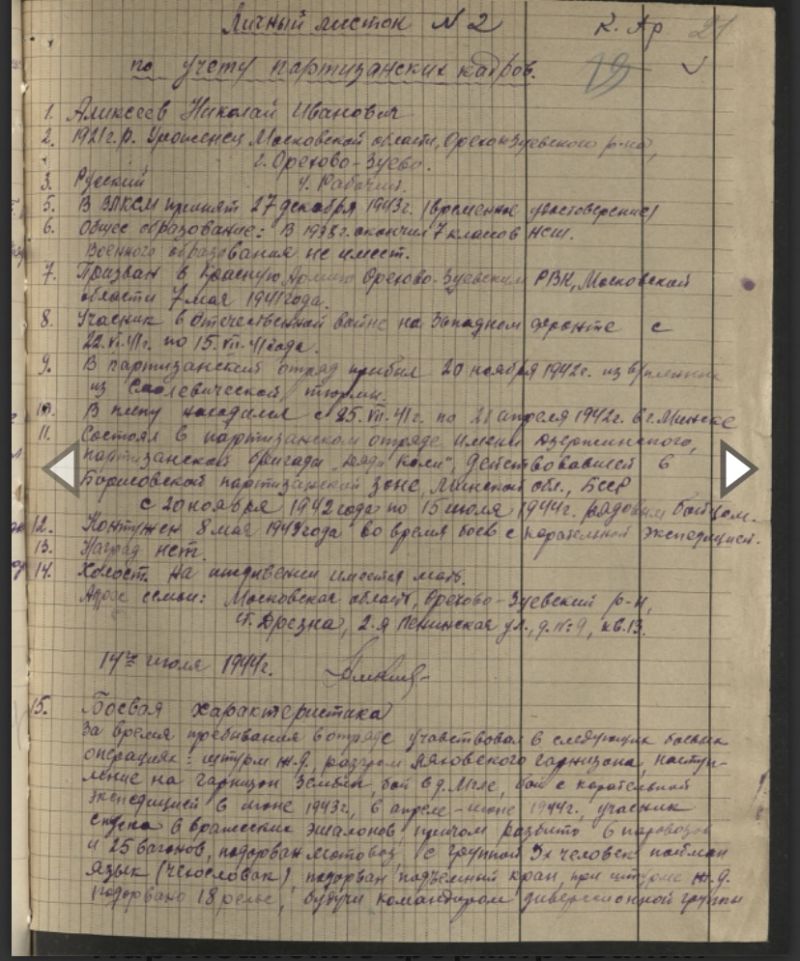 Личный листок N 2
К. Ар 21
по учету партизанских кадров.
19
1. Алексеев Николай Иванович
2. 1921 г.р. Уроженец Московской области, Орехо-Зуевского р-на,
г. Орехово-Зуево.
3. Русский 4. Рабочий.
5. В ВЛКСМ принят 27 декабря 1943г. (временное удостоверение)
6. Общее образование: В 1938г. окончил 7 классов НСШ.
Военного образования не имеет.
7. Призван в Красную Армию Орехово-Зуевским РВК, Московской
области 7 мая 1941 года.
8. Участник в Отечественной войне на Западном фронте с
22.VI.41г. по 15.VII.41 года.
9. В партизанский отряд прибыл 20 ноября 1942г. из
из Смолевической тюрьмы.
10. В плену находился с 25.VII.41г. по 21 апреля 1942г. в г. Минске
11. Состоял в партизанском отряде имени Дзержинского,
партизанской бригады "Дяди Коли", действовавшей в
Борисовской партизанской зоне, Минской обл., БССР
с 20 ноября 1942 года по 15 июля 1944г. рядовым бойцом.
12. Контужен 8 мая 1943 года во время боев с карательной экспедицией.
13. Наград нет.
14. Холост. На иждивении имеется мать.
Адрес семьи: Московская область, Орехово-Зуевский р-н,
ст. Дрезна, 2-я Ленинская ул., д. № 9, кв. 13.
14го июля 1944г.
15. Боевая характеристика
За время пребывания в отряде участвовал в следующих боевых
операциях: штурм ж.д., разгром гарнизона, насту-
пление на гарнизон Зембин, бой в д. Мгле, бои с карательной
экспедицией в июне 1943г., в апреле-июне 1944г., участник
спуска 6 вражеских эшелонов причем разбито 6 паровозов
и 25 вагонов, подорван мотовоз, с группой 3х человек пойман
язык (чехословак), подорван подъемный кран, при штурме ж.д.
подорвано 18 рельс, будучи командиром диверсионной группы